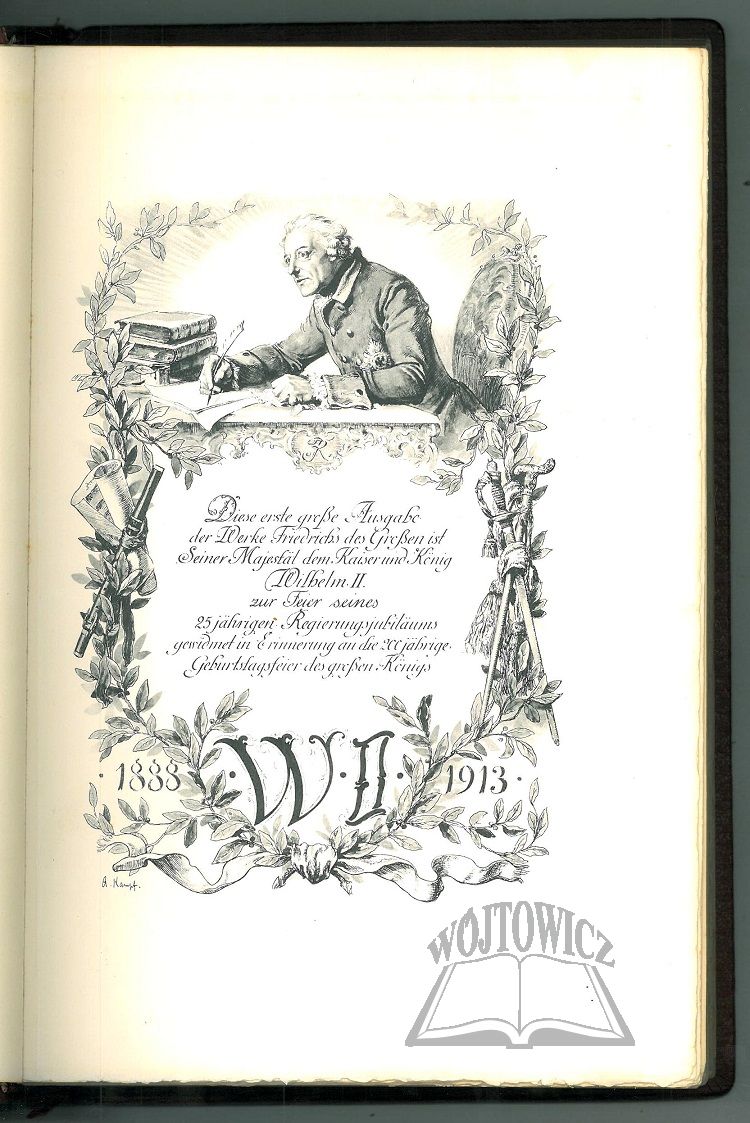 R
Diese erste große Ausgabe
der Werke Friedrichs des Großen ist
Seiner Majestät dem Kaiser und König
Wilhelm II.
zur Feier seines
25 jährigen Regierungsjubiläums
gewidmet in Erinnerung an die 200 jährige
Geburtstagsfeier des großen Königs
· 1888 · W · II · 1913 ·
A. Kampf.
WÓJTOWICZ